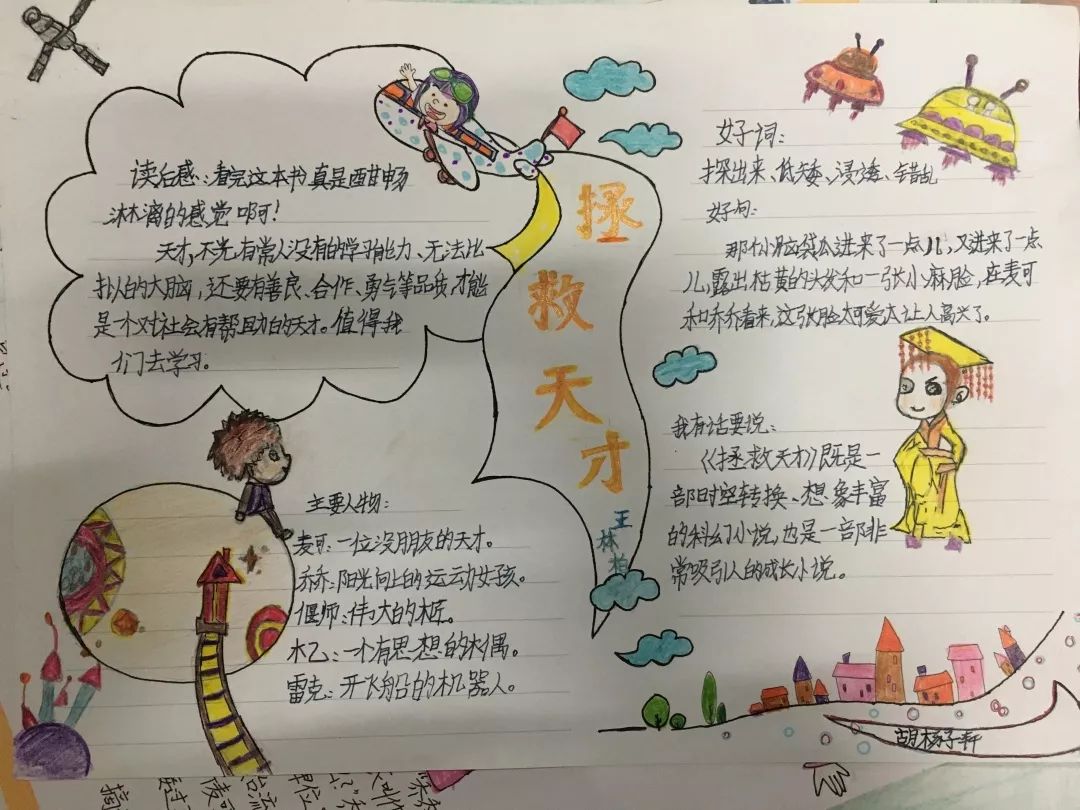 读后感:看完这本书真是酣畅
淋漓的感觉啊!
天才,不光有常人没有的学习能力、无法比
拟的大脑,还要有善良、合作、勇气等品质,才能
是一个对社会有帮助的天才。值得我
们去学习。
拯救天才
王林柏
好词:
探出来、低矮、浸透、错乱
好句:
那个小脑袋瓜进来了一点儿,又进来了一点
儿,露出枯黄的头发和一张小麻脸,在麦可
和乔乔看来,这张脸太可爱太让人高兴了。
我有话要说:
《拯救天才》既是一
部时空转换、想象丰富
的科幻小说,也是一部非
常吸引人的成长小说。
主要人物:
麦可:一位没朋友的天才。
乔乔:阳光向上的运动女孩。
偃师:伟大的木匠。
木乙:一个有思想的木偶。
雷克:开飞船的机器人。
胡杨子轩